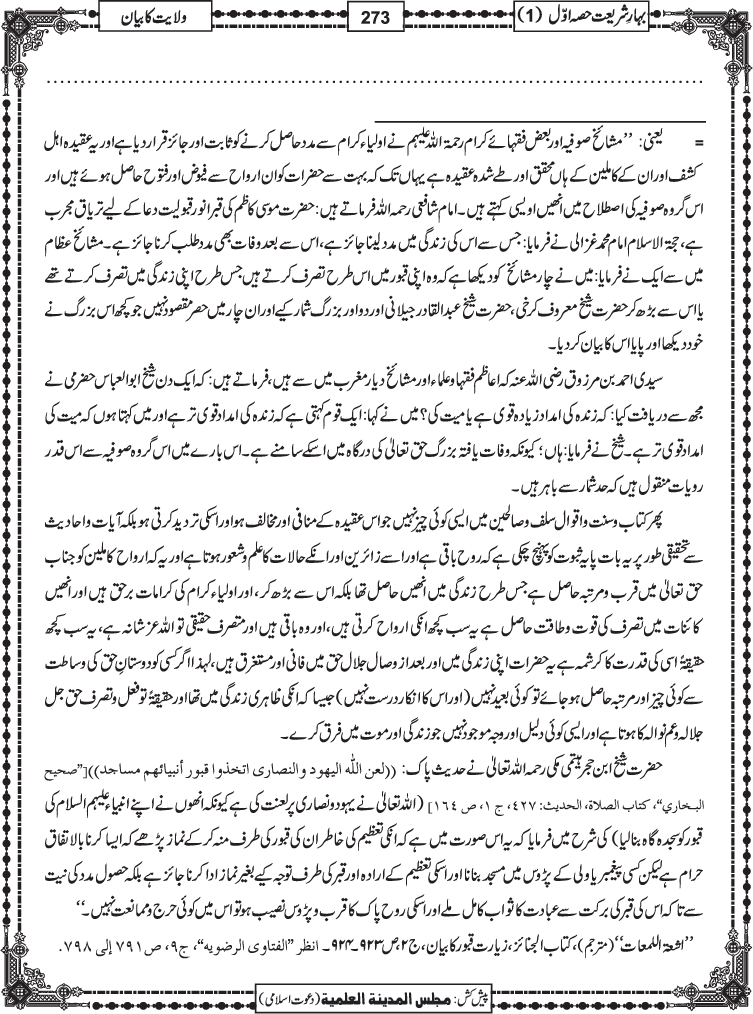 بہارِ شریعت حصہ اوّل (1)
273
ولایت کا بیان
........................................................................................................
= یعنی: ’’مشائخ صوفیہ اور بعض فقہائے کرام رحمۃ اللہ علیہم نے اولیاء کرام سے مدد حاصل کرنے کو ثابت اور جائز قرار دیا ہے اور یہ عقیدہ اہل
کشف اور ان کے کاملین کے ہاں محقق اور طے شدہ عقیدہ ہے یہاں تک کہ بہت سے حضرات کو ان ارواح سے فیوض اور فتوح حاصل ہوئے ہیں اور
اس گروہ صوفیہ کی اصطلاح میں انھیں اویسی کہتے ہیں۔ امام شافعی رحمہ اللہ فرماتے ہیں: حضرت موسی کاظم کی قبر انور قبولیت دعا کے لیے تریاق مجرب
ہے، حجۃ الاسلام امام محمد غزالی نے فرمایا: جس سے اس کی زندگی میں مدد لینا جائز ہے، اس سے بعد وفات بھی مدد طلب کرنا جائز ہے۔ مشائخ عظام
میں سے ایک نے فرمایا: میں نے چار مشائخ کو دیکھا ہے کہ وہ اپنی قبور میں اس طرح تصرف کرتے ہیں جس طرح اپنی زندگی میں تصرف کرتے تھے
یا اس سے بڑھ کر حضرت شیخ معروف کرخی، حضرت شیخ عبدالقادر جیلانی اور دو اور بزرگ شمار کیے اور ان چار میں حصر مقصود نہیں جو کچھ اس بزرگ نے
خود دیکھا اور پایا اس کا بیان کر دیا۔
سیدی احمد بن مرزوق رضی اللہ عنہ کہ اعاظم فقہا و علماء اور مشائخ دیار مغرب میں سے ہیں، فرماتے ہیں: کہ ایک دن شیخ ابو العباس حضرمی نے
مجھ سے دریافت کیا: کہ زندہ کی امداد زیادہ قوی ہے یا میت کی؟ میں نے کہا: ایک قوم کہتی ہے کہ زندہ کی امداد قوی تر ہے اور میں کہتا ہوں کہ میت کی
امداد قوی تر ہے۔ شیخ نے فرمایا: ہاں؛ کیونکہ وفات یافتہ بزرگ حق تعالیٰ کی درگاہ میں اسکے سامنے ہے۔ اس بارے میں اس گروہ صوفیہ سے اس قدر
روایات منقول ہیں کہ حد شمار سے باہر ہیں۔
پھر کتاب و سنت و اقوال سلف و صالحین میں ایسی کوئی چیز نہیں جو اس عقیدہ کے منافی اور مخالف ہو اور اسکی تردید کرتی ہو بلکہ آیات و احادیث
سے تحقیقی طور پر یہ بات پایۂ ثبوت کو پہنچ چکی ہے کہ روح باقی ہے اور اسے زائرین اور انکے حالات کا علم و شعور ہوتا ہے اور یہ کہ ارواح کاملین کو جناب
حق تعالیٰ میں قرب و مرتبہ حاصل ہے جس طرح زندگی میں انھیں حاصل تھا بلکہ اس سے بڑھ کر، اور اولیاء کرام کی کرامات برحق ہیں اور انھیں
کائنات میں تصرف کی قوت و طاقت حاصل ہے یہ سب کچھ انکی ارواح کرتی ہیں، اور وہ باقی ہیں اور متصرف حقیقی تو اللہ عز شانہ ہے، یہ سب کچھ
حقیقۃً اسی کی قدرت کا کرشمہ ہے یہ حضرات اپنی زندگی میں اور بعد از وصال جلال حق میں فانی اور مستغرق ہیں، لہذا اگر کسی کو دوستانِ حق کی وساطت
سے کوئی چیز اور مرتبہ حاصل ہو جائے تو کوئی بعید نہیں (اور اس کا انکار درست نہیں) جیسا کہ انکی ظاہری زندگی میں تھا اور حقیقۃً تو فعل و تصرف حق جل
جلالہ و عم نوالہ کا ہوتا ہے اور ایسی کوئی دلیل اور وجہ موجود نہیں جو زندگی اور موت میں فرق کرے۔
حضرت شیخ ابن حجر ہیتمی مکی رحمہ اللہ تعالیٰ نے حدیث پاک: ((لعن اللّٰہ الیھود والنصاری اتخذوا قبور أنبیائھم مساجد))[’’صحیح
البخاري‘‘، کتاب الصلاۃ، الحدیث: ۴۲۷، ج ۱، ص ۱۶۴] (اللہ تعالیٰ نے یہود و نصاریٰ پر لعنت کی ہے کیونکہ انھوں نے اپنے انبیاء علیہم السلام کی
قبور کو سجدہ گاہ بنا لیا) کی شرح میں فرمایا کہ یہ اس صورت میں ہے کہ انکی تعظیم کی خاطر ان کی قبور کی طرف منہ کر کے نماز پڑھے کہ ایسا کرنا بالاتفاق
حرام ہے لیکن کسی پیغمبر یا ولی کے پڑوس میں مسجد بنانا اور اسکی تعظیم کے ارادہ اور قبر کی طرف توجہ کیے بغیر نماز ادا کرنا جائز ہے بلکہ حصول مدد کی نیت
سے تا کہ اس کی قبر کی برکت سے عبادت کا ثواب کامل ملے اور اسکی روح پاک کا قرب و پڑوس نصیب ہو تو اس میں کوئی حرج و ممانعت نہیں۔‘‘
’’اشعۃ اللمعات‘‘ (مترجم)، کتاب الجنائز، زیارت قبور کا بیان، ج۲، ص۹۲۳۔۹۲۴۔ انظر ’’الفتاوی الرضویہ‘‘، ج۹، ص۷۹۱ إلی ۷۹۸.
پیش کش: مجلس المدینۃ العلمیۃ (دعوتِ اسلامی)